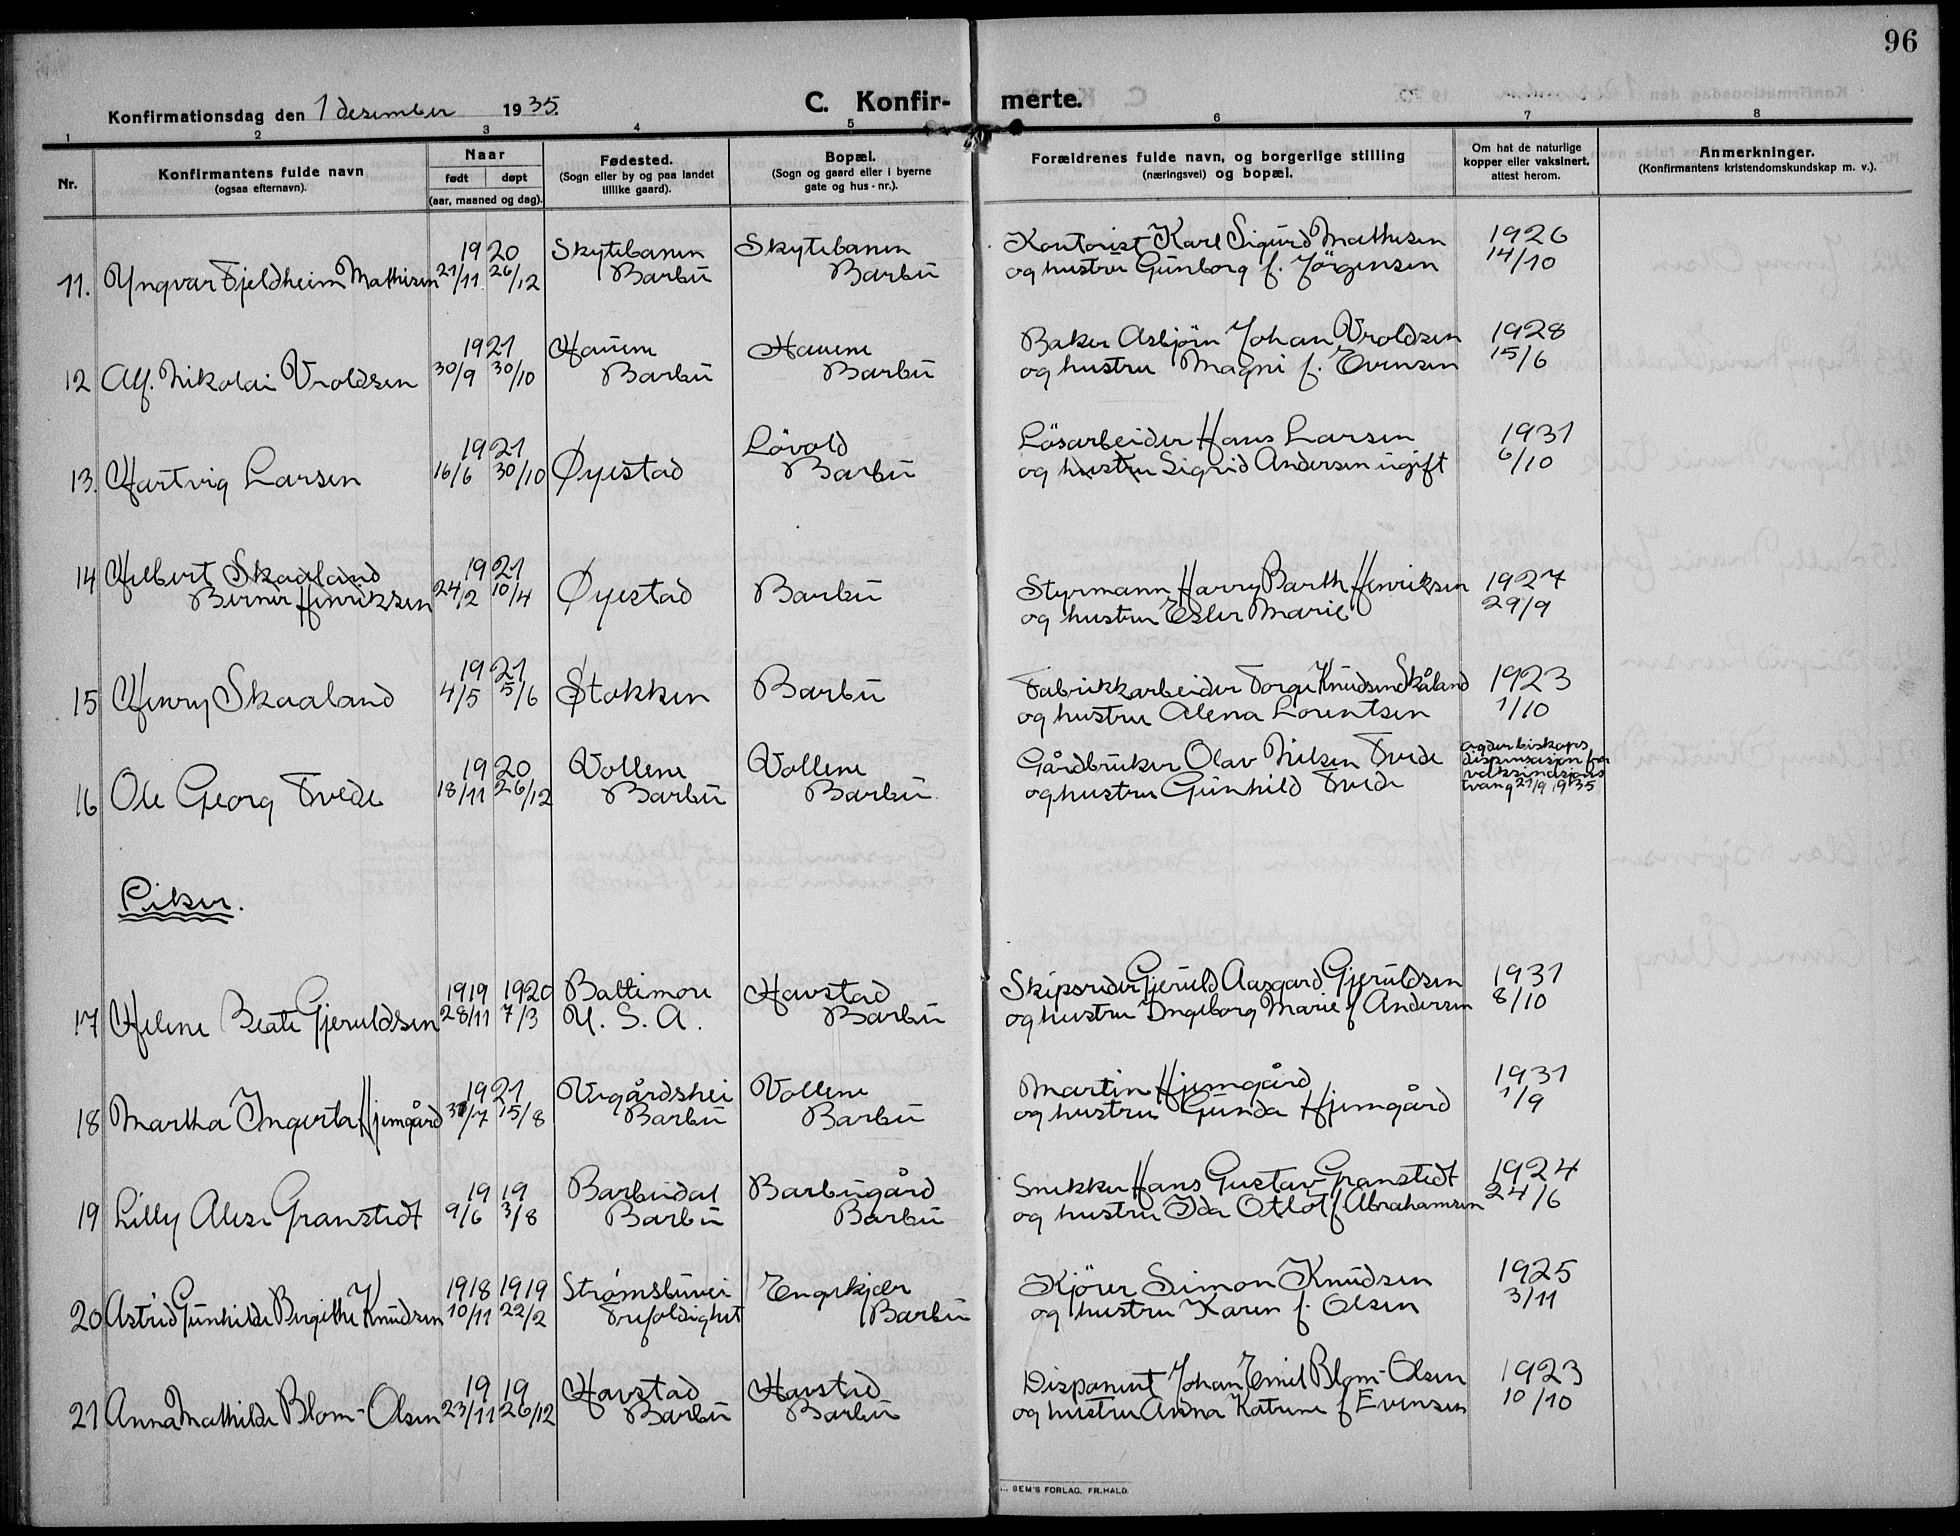 96
Konfirmationsdag den 1 desember 1935.
C. Konfir- merte.
1 2 3 4 5 6 7 8
Nr.
Konfirmantens fulde navn
(ogsaa efternavn).
Naar
født døpt
(aar, maaned og dag).
Fødested.
(Sogn eller by og paa landet
tillike gaard).
Bopæl.
(Sogn og gaard eller i byerne
gate og hus-nr.).
Forældrenes fulde navn, og borgerlige stilling
(næringsvei) og bopæl.
Om hat de naturlige
kopper eller vaksinert,
attest herom.
Anmerkninger.
(Konfirmantens kristendomskundskap m. v.).
19 20 Skytebanen Skytebanen Kontorist Karl Sigurd Mathisen 1926
11. Yngvar Fjeldheim Mathisen 21/11 26/12 Barbu Barbu og hustru Gunborg f. Jörgensen 14/10
19 21 Hauene Hauene Baker Asbjörn Johan Vroldsen 1928
12 Alf. Nikolai Vroldsen 30/9 30/10 Barbu Barbu og hustru Magni f. Evensen 15/6
19 21 Lövold Lösarbeider Hans Larsen 1931
13. Hartvig Larsen 16/6 30/10 Øyestad Barbu og hustru Sigrid Andersen ugift 6/10
14 Helbert Skaaland 19 21 Styrmann Harry Barth Henriksen 1927
Berner Henriksen 24/2 10/4 Øyestad Barbu og hustru Ester Marie 29/9
19 21 Fabrikkarbeider Torge Knudsen Skåland 1923
15 Henry Skaaland 4/5 5/6 Stokken Barbu og hustru Alena Lorentsen 1/10
19 20 Vollene Vollene Gårdbruker Olav Nilsen Tvede Agder biskops
dispensasjon for
vaksinasjons
16 Ole Georg Tvede 18/11 26/12 Barbu Barbu og hustru Gunhild Tvede tvang 21/9 1935
Piker.
1919 1920 Baltimore Havstad Skipsreder Gjeruld Aasgard Gjeruldsen 1931
17 Helene Beate Gjeruldsen 28/11 7/3 U. S. A. Barbu og hustru Ingeborg Marie f Andersen 8/10
19 21 Vegårdshei Vollene Martin Hjemgård 1931
18 Martha Ingerta Hjemgård 31/7 15/8 Barbu Barbu og hustru Gunda Hjemgård 1/9
19 19 Barbudal Barbugård Snekker Hans Gustav Granstedt 1924
19 Lilly Alise Granstedt 9/6 3/8 Barbu Barbu og hustru Ida Otlot f Abrahamsen 24/6
1918 1919 Strømsbuvei Engekjær Kjörer Simon Knudsen 1925
20 Astrid Gunhilde Birgithe Knudsen 10/11 22/2 Trefoldighet Barbu og hustru Karen f. Olsen 3/11
19 19 Havstad Havstad Disponent Johan Emil Blom-Olsen 1923
21 Anna Mathilde Blom-Olsen 23/11 26/12 Barbu Barbu og hustru Anna Katrine f Evensen 10/10
SEM'S FORLAG, FR.HALD.